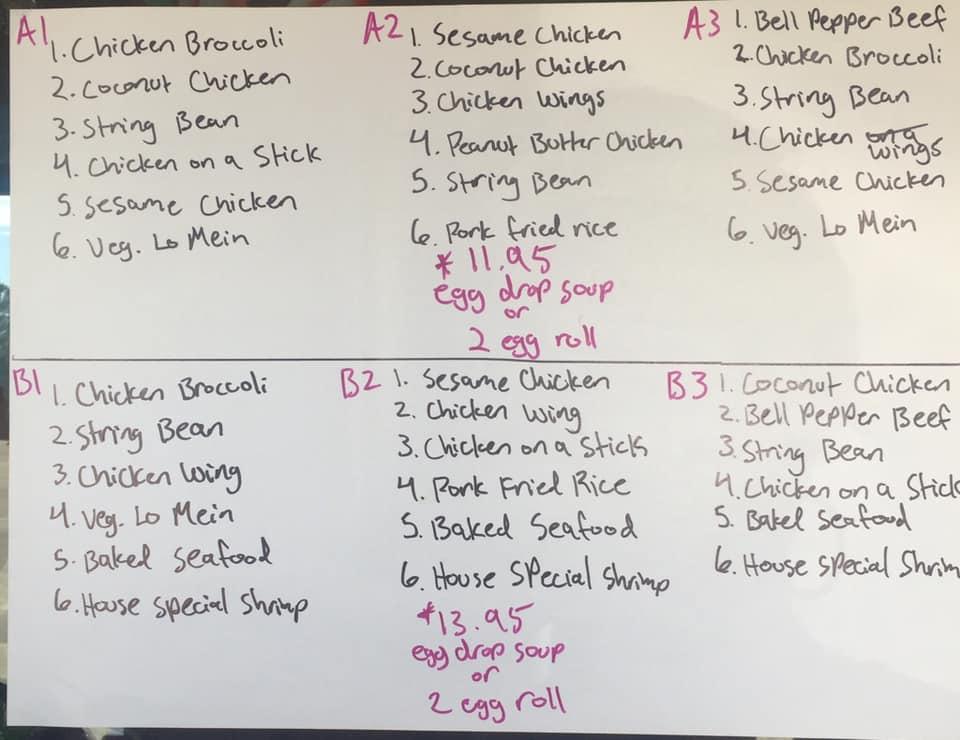 A1
1. Chicken Broccoli
2. Coconut Chicken
3. String Bean
4. Chicken on a Stick
5. Sesame Chicken
6. Veg. Lo Mein
A2
1. Sesame Chicken
2. Coconut Chicken
3. Chicken Wings
4. Peanut Butter Chicken
5. String Bean
6. Pork fried rice
* 11.95
egg drop soup
or
2 egg roll
A3
1. Bell Pepper Beef
2. Chicken Broccoli
3. String Bean
4. Chicken on a
wings
5. Sesame Chicken
6. Veg. Lo Mein
B1
1. Chicken Broccoli
2. String Bean
3. Chicken Wing
4. Veg. Lo Mein
5. Baked Seafood
6. House Special Shrimp
B2
1. Sesame Chicken
2. Chicken Wing
3. Chicken on a Sticks
4. Pork Fried Rice
5. Baked Seafood
6. House Special Shrimp
*13.95
egg drop soup
or
2 egg roll
B3
1. Coconut Chicken
2. Bell Pepper Beef
3. String Bean
4. Chicken on a Stick
5. Bakel Seafoud
6. House Special Shrim